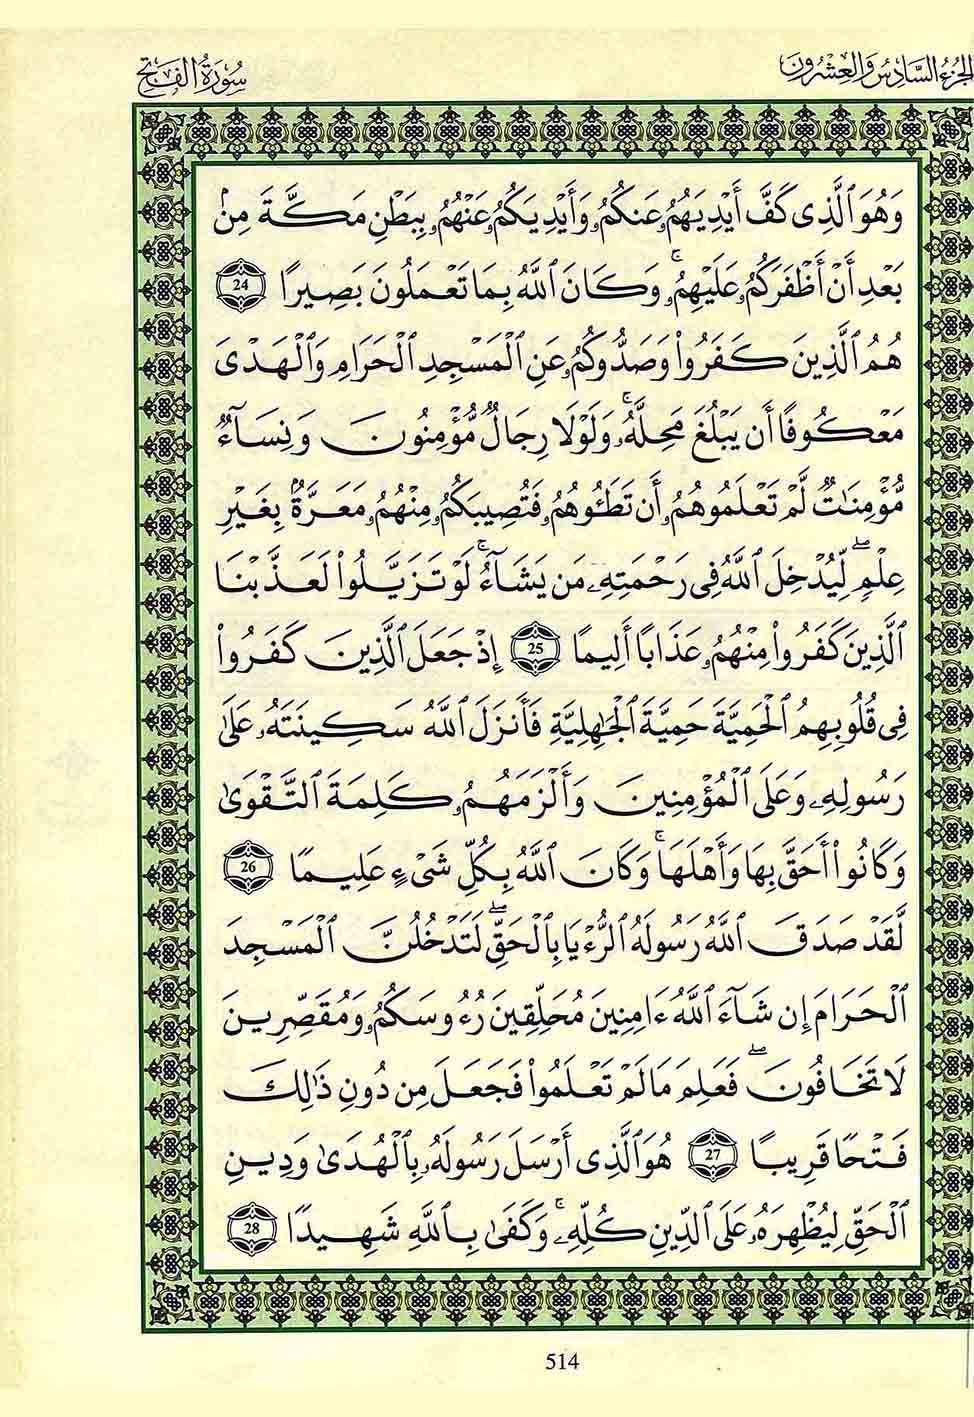 الجزء السادس والعشرون
سورة الفتح
وَهُوَ ٱلَّذِى كَفَّ أَيْدِيَهُمُۥ عَنكُمُۥ وَأَيْدِيَكُمُۥ عَنْهُمُۥ بِبَطْنِ مَكَّةَ مِنۢ
بَعْدِ أَنْ أَظْفَرَكُمُۥ عَلَيْهِمُۥ ۚ وَكَانَ ٱللَّهُ بِمَا تَعْمَلُونَ بَصِيرًا 24
هُمُ ٱلَّذِينَ كَفَرُوا۟ وَصَدُّوكُمُۥ عَنِ ٱلْمَسْجِدِ ٱلْحَرَامِ وَٱلْهَدْىَ
مَعْكُوفًا أَن يَبْلُغَ مَحِلَّهُۥ ۚ وَلَوْلَا رِجَالٌ مُّؤْمِنُونَ وَنِسَآءٌ
مُّؤْمِنَٰتٌ لَّمْ تَعْلَمُوهُمُۥ أَن تَطَـُٔوهُمُۥ فَتُصِيبَكُمُۥ مِنْهُمُۥ مَعَرَّةٌۢ بِغَيْرِ
عِلْمٍ ۖ لِّيُدْخِلَ ٱللَّهُ فِى رَحْمَتِهِۦ مَن يَشَآءُ ۚ لَوْ تَزَيَّلُوا۟ لَعَذَّبْنَا
ٱلَّذِينَ كَفَرُوا۟ مِنْهُمُۥ عَذَابًا أَلِيمًا 25 إِذْ جَعَلَ ٱلَّذِينَ كَفَرُوا۟
فِى قُلُوبِهِمُ ٱلْحَمِيَّةَ حَمِيَّةَ ٱلْجَٰهِلِيَّةِ فَأَنزَلَ ٱللَّهُ سَكِينَتَهُۥ عَلَىٰ
رَسُولِهِۦ وَعَلَى ٱلْمُؤْمِنِينَ وَأَلْزَمَهُمُۥ كَلِمَةَ ٱلتَّقْوَىٰ
وَكَانُوٓا۟ أَحَقَّ بِهَا وَأَهْلَهَا ۚ وَكَانَ ٱللَّهُ بِكُلِّ شَىْءٍ عَلِيمًا 26
لَّقَدْ صَدَقَ ٱللَّهُ رَسُولَهُ ٱلرُّءْيَا بِٱلْحَقِّ ۖ لَتَدْخُلُنَّ ٱلْمَسْجِدَ
ٱلْحَرَامَ إِن شَآءَ ٱللَّهُ ءَامِنِينَ مُحَلِّقِينَ رُءُوسَكُمُۥ وَمُقَصِّرِينَ
لَا تَخَافُونَ ۖ فَعَلِمَ مَا لَمْ تَعْلَمُوا۟ فَجَعَلَ مِن دُونِ ذَٰلِكَ
فَتْحًا قَرِيبًا 27 هُوَ ٱلَّذِى أَرْسَلَ رَسُولَهُۥ بِٱلْهُدَىٰ وَدِينِ
ٱلْحَقِّ لِيُظْهِرَهُۥ عَلَى ٱلدِّينِ كُلِّهِۦ ۚ وَكَفَىٰ بِٱللَّهِ شَهِيدًا 28
514